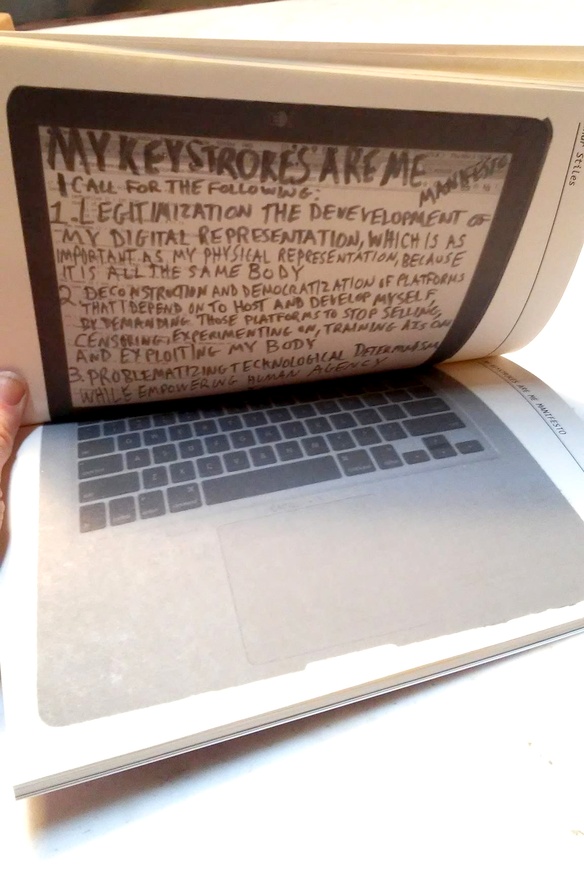 MY KEYSTROKES ARE ME
MANIFESTO
I CALL FOR THE FOLLOWING:
1. LEGITIMIZATION THE DEVEVELOPMENT OF
MY DIGITAL REPRESENTATION, WHICH IS AS
IMPORTANT AS MY PHYSICAL REPRESENTATION, BECAUSE
IT IS ALL THE SAME BODY
2. DECONSTRUCTION AND DEMOCRATIZATION OF PLATFORMS
THAT I DEPEND ON TO HOST AND DEVELOP MYSELF,
BY DEMANDING THOSE PLATFORMS TO STOP SELLING,
CENSORING, EXPERIMENTING ON, TRAINING AIS ON
AND EXPLOITING MY BODY
3. PROBLEMATIZING TECHNOLOGICAL DETERMINISM
WHILE EMPOWERING HUMAN AGENCY
Stiles
ARE ME MANIFESTO